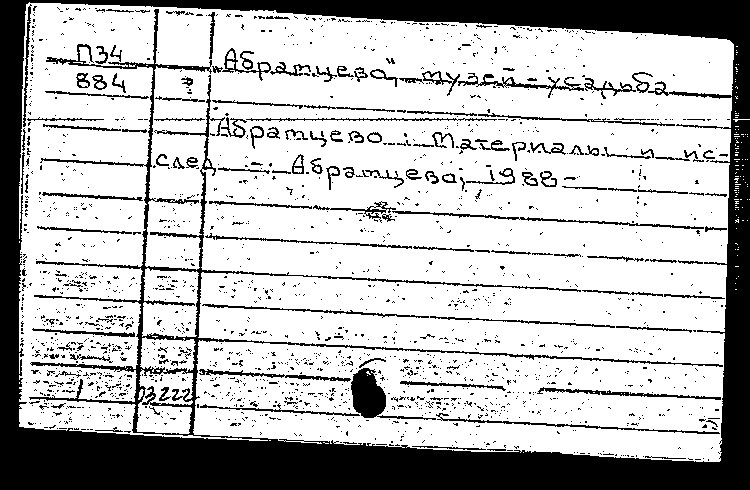 П34
884
Абрамцево", музей-усадьба
Абрамцево : Материалы и ис-
след. -: Абрамцево, 1988-
1 03222